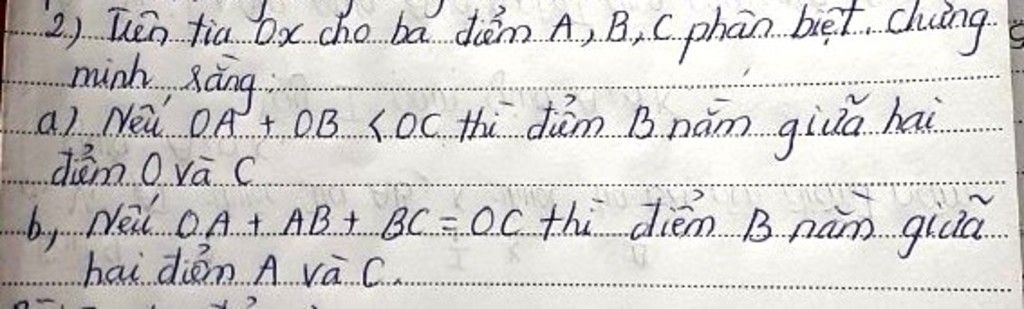 2) Trên tia Ox cho ba điểm A, B, C phân biệt. Chứng
minh rằng:
a) Nếu OA + OB < OC thì điểm B nằm giữa hai
điểm O và C
b, Nếu OA + AB + BC = OC thì điểm B nằm giữa
hai điểm A và C.